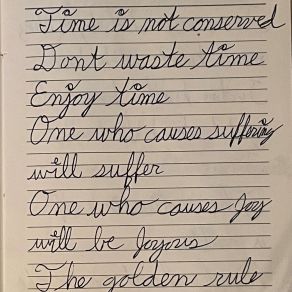 Time is not conserved
Dont waste time
Enjoy time
One who causes suffering
will suffer
One who causes Joy
will be Joyous
The golden rule